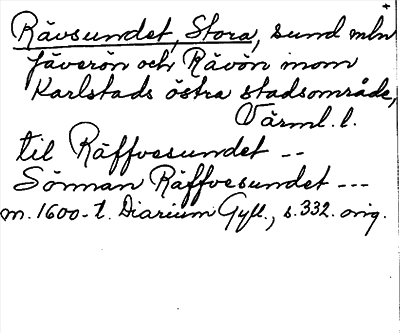 Rävsundet, Stora, sund mln
Jäverön och Rävön inom
Karlstads östra stadsområde,
Värml. l.
til Räffvesundet --
Sönnan Räffvesundet ---
m. 1600-t. Diarium Gyll., s. 332. orig.